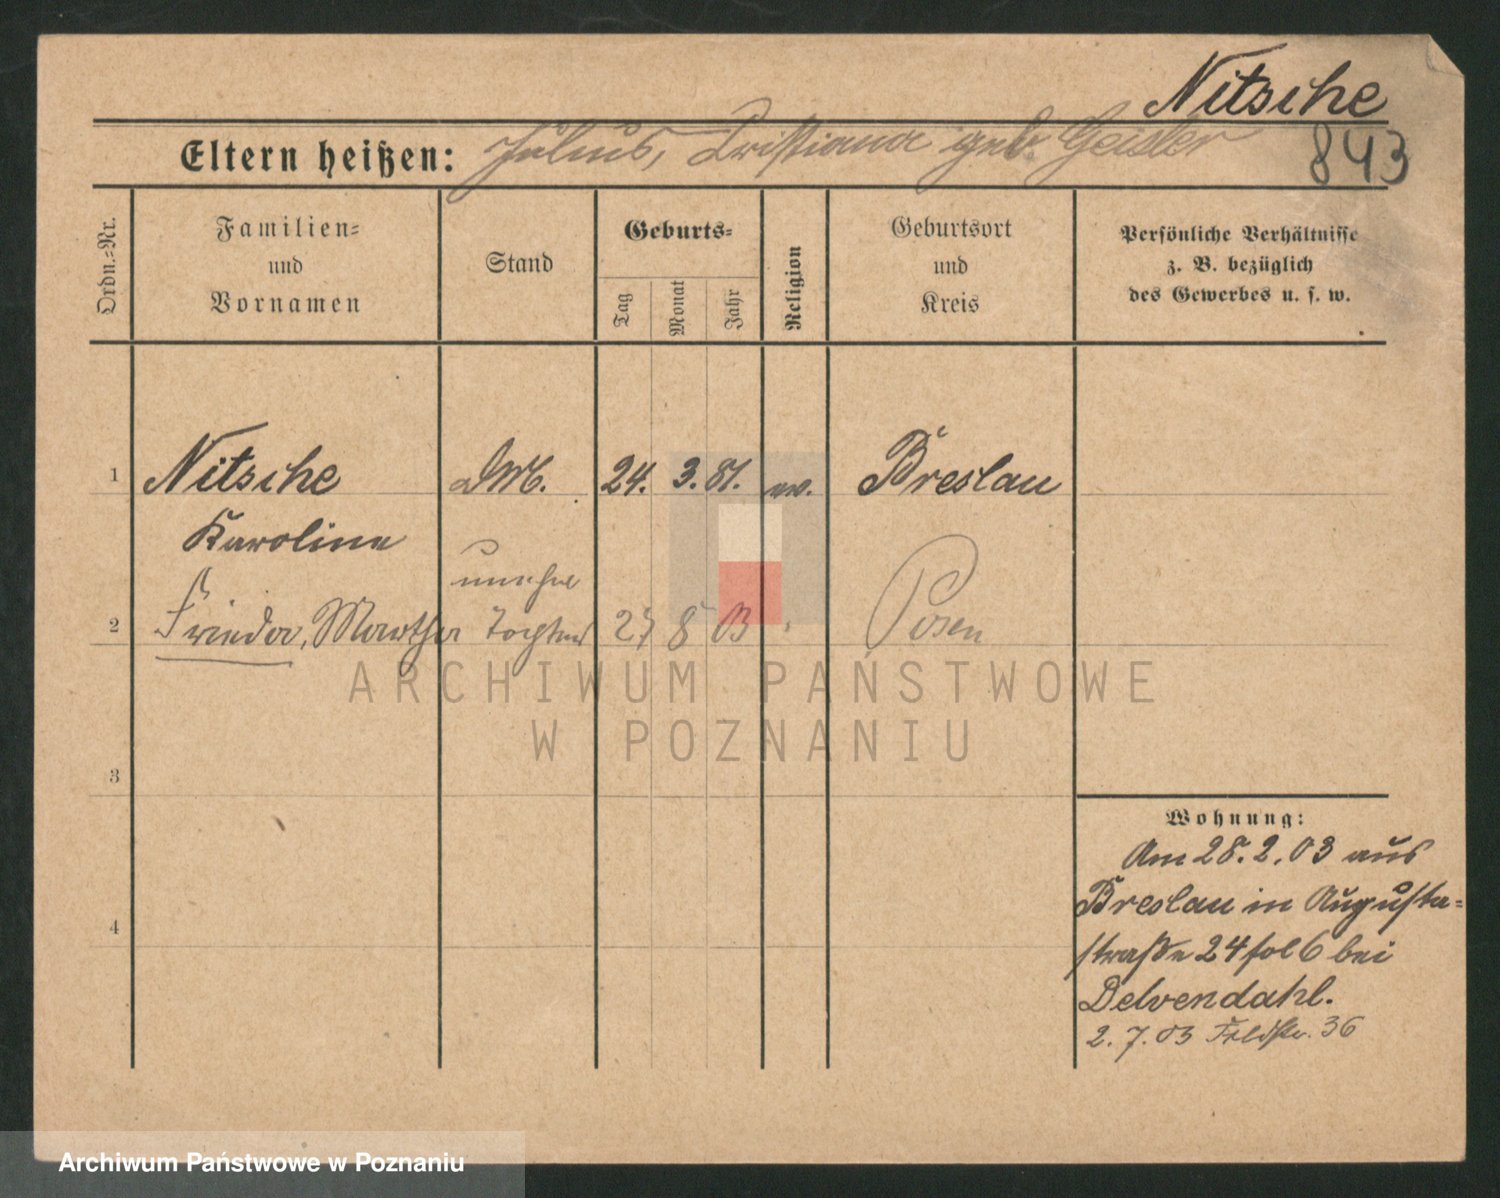 Nitsche
843
Eltern heißen: Julius, Kristiana geb. Geisler
Ordn.-Nr.
Familien-
und
Vornamen
Stand
Geburts-
Tag
Monat
Jahr
Religion
Geburtsort
und
Kreis
Persönliche Verhältnisse
z. B. bezüglich
des Gewerbes u. s. w.
1 Nitsche 24. 3. 81. ev. Breslau
Karoline
unehel
2 Frieda, Martha Tochter 27 8 03 Posen
ARCHIWUM PAŃSTWOWE
W POZNANIU
3
Wohnung:
Am 28. 2. 03 aus
Breslau in Augusta-
straße 24 bei
Delvendahl.
2. 7. 03 Feldstr. 36
4
Archiwum Państwowe w Poznaniu